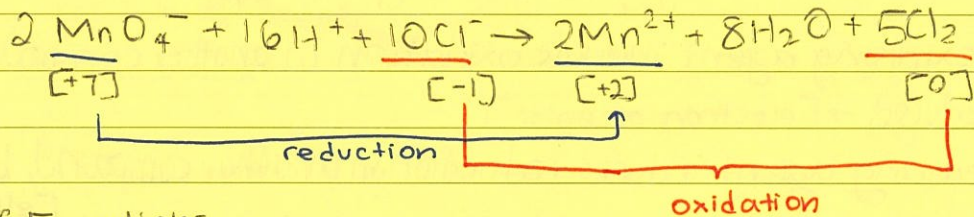 2 MnO₄⁻ + 16H⁺ + 10Cl⁻ → 2Mn²⁺ + 8H₂O + 5Cl₂
[+7] [-1] [+2] [0]
reduction
oxidation